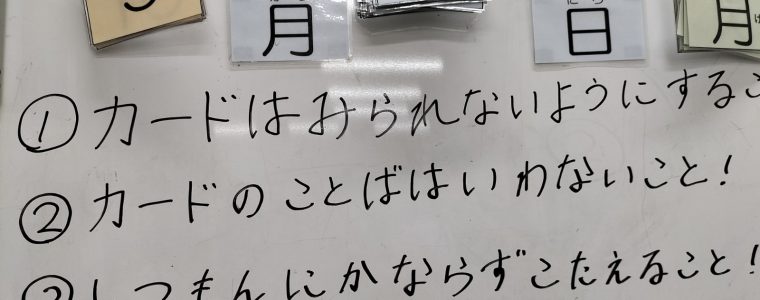 月 日 月
①カードはみられないようにするこ
②カードのことばはいわないこと!
③しつもんにかならずこたえること!